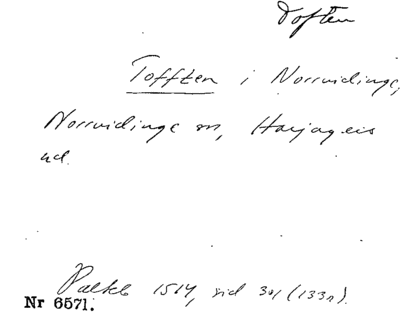 Toften
Tofften i Norrvidinge,
Norrvidinge sn, Harjagers
hd.
Palteb 1514, sid 301 (133r).
Nr 6571.